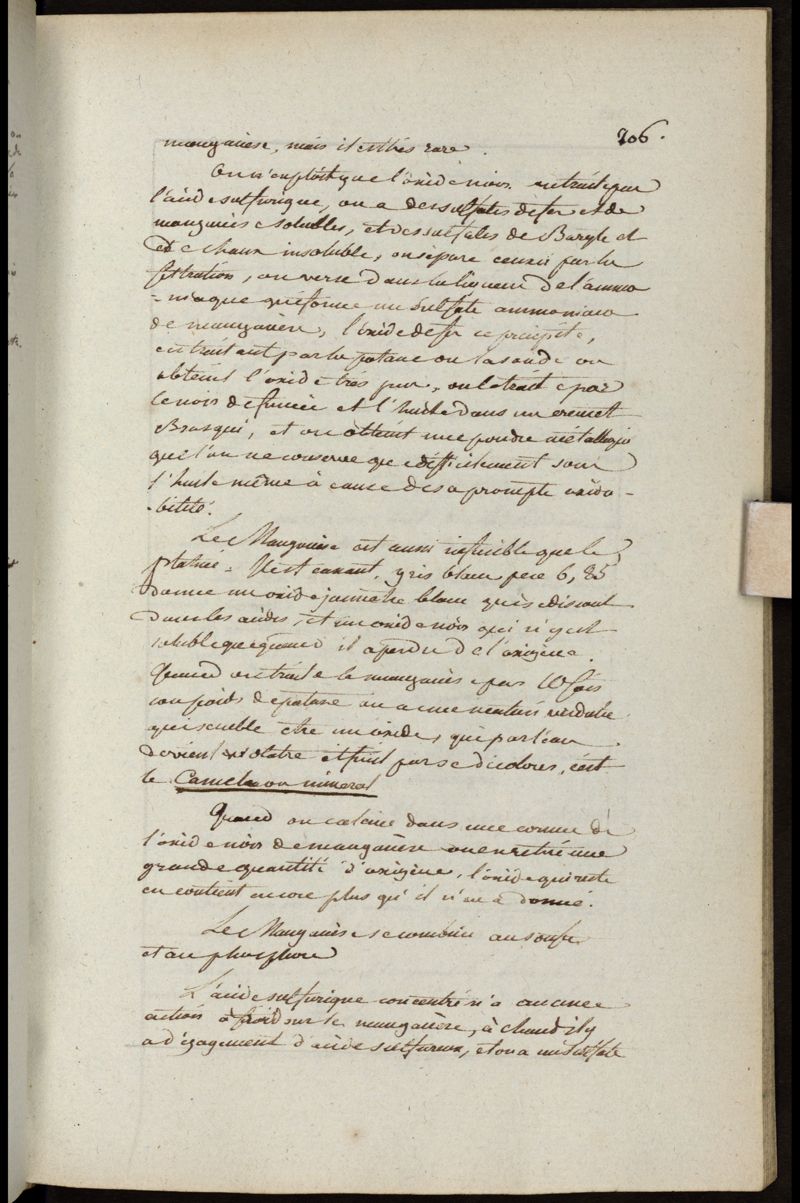 206.
manganèse, mais il est très rare.
On n'exploite que l'oxide noir. en traité par
l'acide sulfurique, on a des sulfates de fer et de
manganèse solubles, et des sulfates de Baryte et
de chaux insoluble, on sépare ceux ci par la
filtration, on verse dans la liqueur de l'ammo
=niaque qui forme un sulfate ammoniaco
de manganèse, l'oxide de fer ce précipite,
en traitant par la potasse ou la soude on
obtient l'oxide très pur, on le traite par
le noir de fumée et l'huile dans un creuset
Brasqué, et on obtient une poudre métallique
que l'on ne conserve que difficilement sous
l'huile même à cause de sa prompte oxida-
-bilité.
Le Manganèse est aussi infusible que le
platine. Il est cassant, gris blanc pese 6,85
donne un oxide jaunâtre blanc qui se dissout
dans les acides, et un oxide noir qui n'y est
soluble que quand il a perdu de l'oxigène.
Quand on traite le manganèse par 10 fois
son poids de potasse on a une matière verdatre
qui semble être un oxide, qui par l'eau
devient violatre et finit par se décolorer, c'est
le Cameleon mineral
Quand on calcine dans une cornue de
l'oxide noir de manganèse on en retire une
grande quantité d'oxigène, l'oxide qui reste
en contient encore plus qu'il n'en a donné.
Le Manganèse se combine au soufre
et au phosphore
L'acide sulfurique concentré n'a aucune
action à froid sur le manganèse, à chaud il y
a dégagement d'acide sulfureux, et on a un sulfate